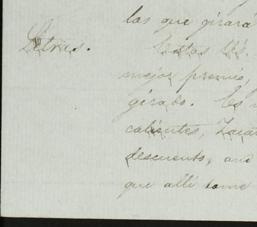 las que girará
Letras. Estas LL.
mejor premio,
girado. Es
calientes, Zaca
descuento,
que allí tome